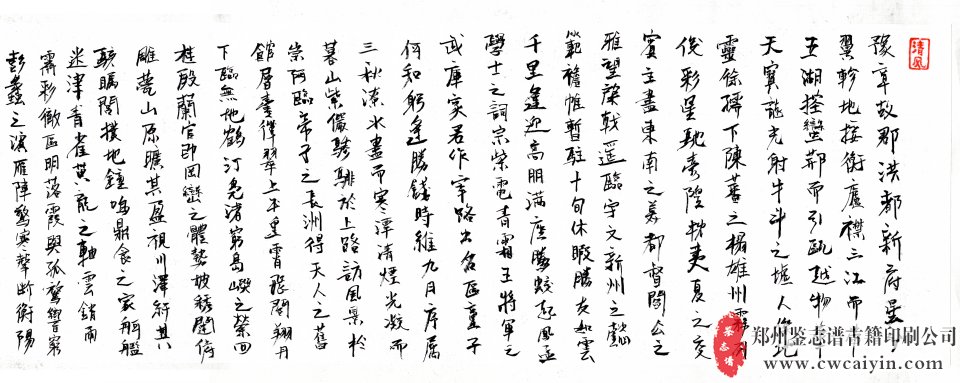 清風
豫章故郡洪都新府星
翼軫地接衡廬襟三江而
五湖控蠻荊而引甌越物
天寶龍光射牛斗之墟人傑地
靈徐孺下陳蕃之榻雄州霧列
俊彩星馳臺隍枕夷夏之交
賓主盡東南之美都督閻公之
雅望棨戟遥臨宇文新州之懿
範襜帷暫駐十旬休暇勝友如雲
千里逢迎高朋滿座騰蛟起鳳孟
學士之詞宗紫電青霜王將軍之
武庫家君作宰路出名區童子
何知躬逢勝餞時維九月序屬
三秋潦水盡而寒潭清煙光凝而
暮山紫儼驂騑於上路訪風景於
崇阿臨帝子之長洲得天人之舊
館層臺聳翠上出重霄飛閣翔丹
下臨無地鶴汀鳧渚窮島嶼之縈回
桂殿蘭宮即岡巒之體勢披繡闥俯
雕甍山原曠其盈視川澤紆其
駭矚閻撲地鐘鳴鼎食之家舸艦
迷津青雀黃龍之軸雲銷雨
霽彩徹區明落霞與孤鶩響窮
彭蠡之濱雁陣驚寒聲斷衡陽
鉴志谱
郑州鉴志谱古籍印刷公司
www.cwcaiyin.com